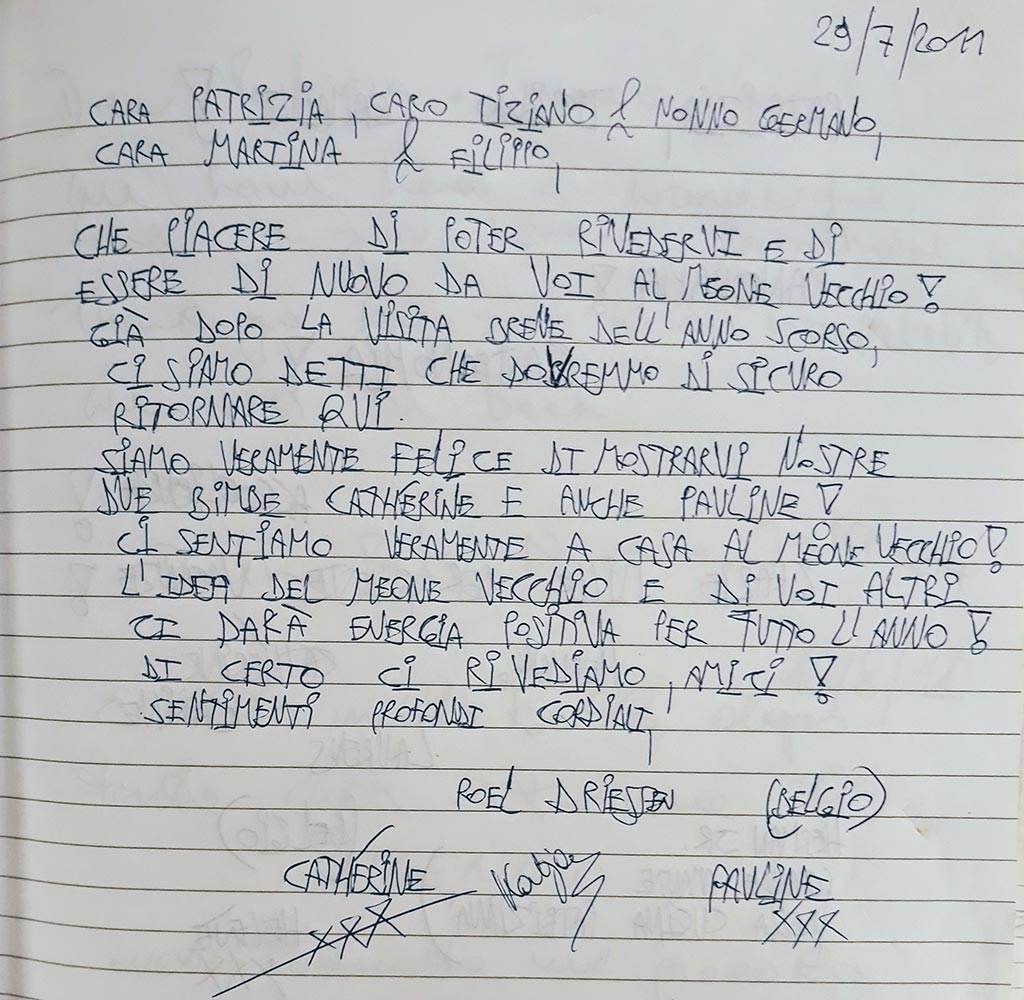 29/7/2011
CARA PATRIZIA, CARO TIZIANO & NONNO GERMANO,
CARA MARTINA & FILIPPO,
CHE PIACERE DI POTER RIVEDERVI E DI
ESSERE DI NUOVO DA VOI AL MEONE VECCHIO!
GIÀ DOPO LA VISITA BREVE DELL'ANNO SCORSO,
CI SIAMO DETTI CHE DOVREMMO DI SICURO
RITORNARE QUI.
SIAMO VERAMENTE FELICE DI MOSTRARVI NOSTRE
DUE BIMBE CATHÉRINE E ANCHE PAULINE!
CI SENTIAMO VERAMENTE A CASA AL MEONE VECCHIO!
L'IDEA DEL MEONE VECCHIO E DI VOI ALTRI
CI DARÀ ENERGIA POSITIVA PER TUTTO L'ANNO!
DI CERTO CI RIVEDIAMO, AMICI!
SENTIMENTI PROFONDI CORDIALI,
ROEL DRIESSEN (BELGIO)
CATHÉRINE Katja PAULINE
XXX XXX